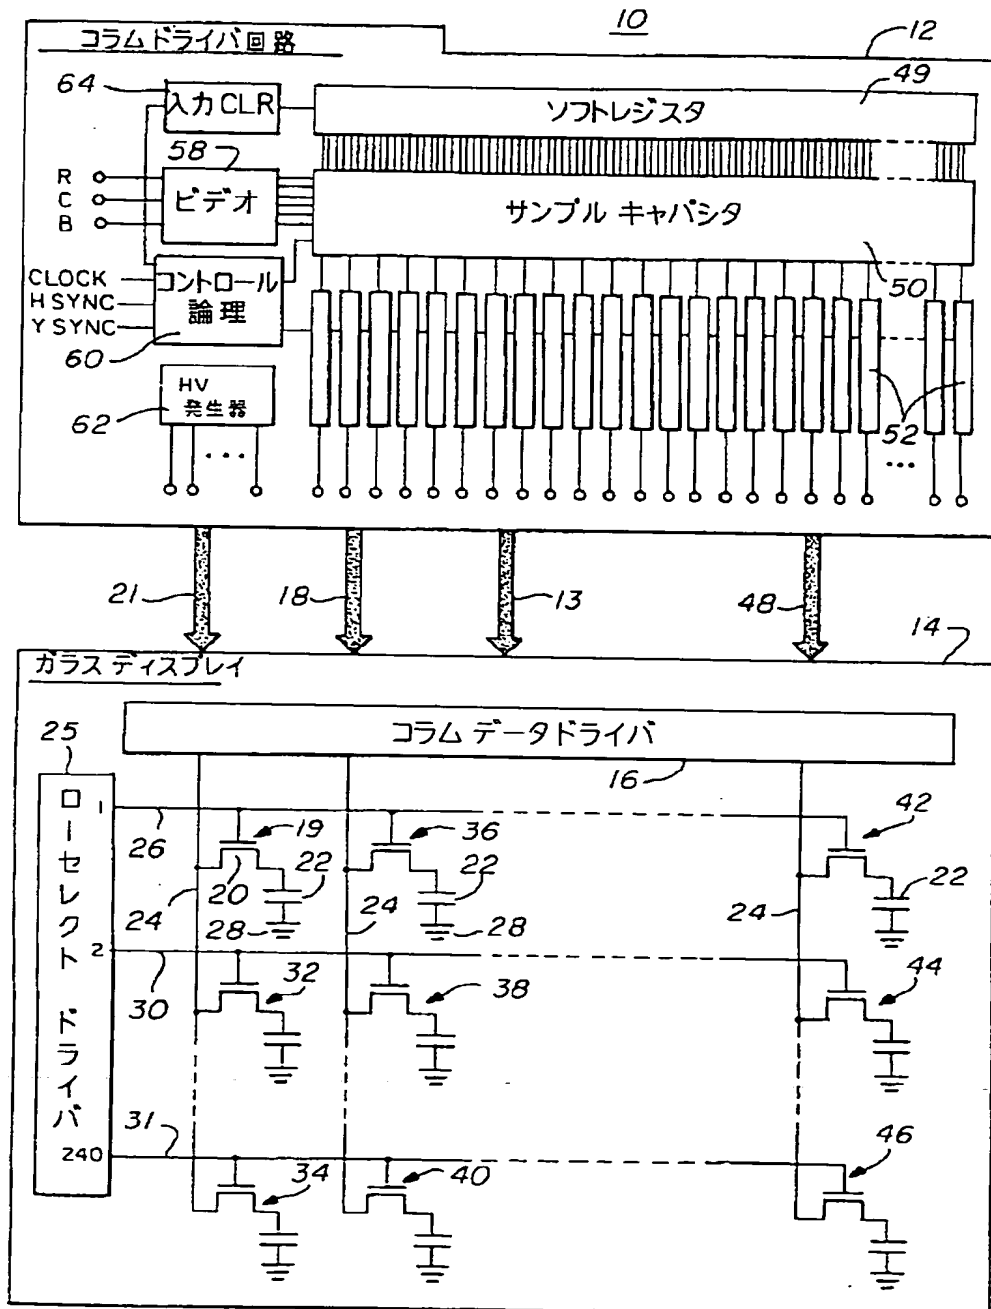 10
コラムドライバ回路
12
64
入力CLR
49
ソフトレジスタ
58
R
C
B
ビデオ
サンプル キャパシタ
CLOCK
H SYNC
Y SYNC
コントロール
論理
50
60
HV
発生器
62
...
52
...
21
18
13
48
14
ガラスディスプレイ
25
コラム データドライバ
16
ローセレクト ドライバ
1
26
19
36
42
20
22
22
22
24
24
24
28
28
2
30
32
38
44
31
240
34
40
46